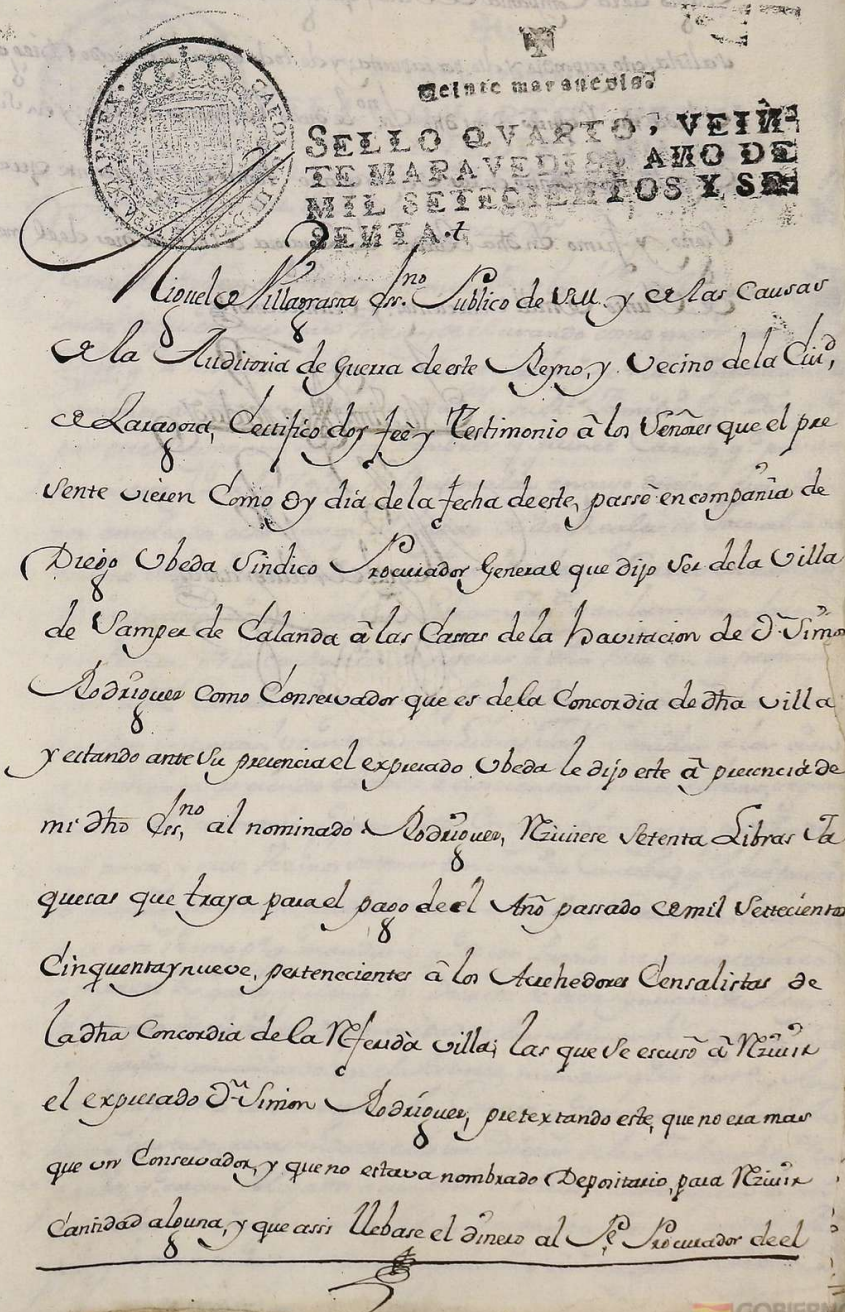 Veinte maravedis.
SELLO QVARTO, VEIN-
TE MARAVEDIS, AÑO DE
MIL SETECIENTOS Y SE-
SENTA.
CAROL. III. D. G. HISPANIAR. REX.
Miguel de Villagrassa Ess.no Publico de S.M. y de las Causas
de la Auditoria de Guerra de este Reyno, y Vecino de la Ciud,
de Zaragoza, Certifico doy feè y Testimonio â los Señores que el pre
sente vieren Como Oy dia de la fecha de este, passè en compañia de
Diego Ubeda Sindico Procurador General que dijo ser de la Villa
de Samper de Calanda â las Cassas de la havitacion de Dn Simon
Rodriguez como Conservador que es de la Concordia de dha villa
y estando ante su presencia el expresado Ubeda le dijo este â presencia de
mi dho Ess.no al nominado Rodriguez, Rziviese Setenta Libras Ja
quesas que traya para el pago de el Año passado de mil Settecientos
Cinquenta y nueve, pertenecientes â los Acrehedores Censalistas de
la dha Concordia de la Rferida villa; las que se escusò â Rzivir
el expresado Dn Simon Rodriguez, pretextando este, que no era mas
que un Conservador, y que no estava nombrado Depositario, para Rzivir
Cantidad alguna, y que assi llebase el dinero al Pe Procurador de el
GOBIERNO